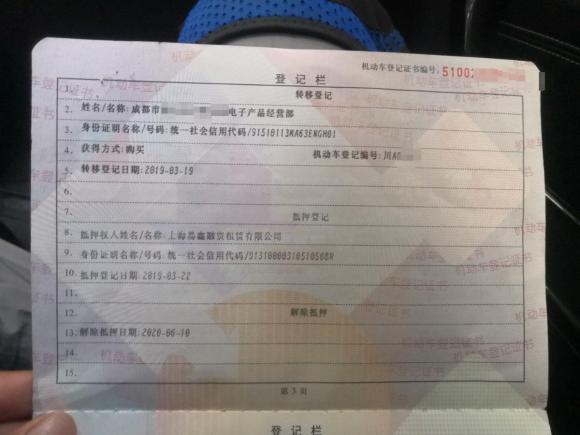 机动车登记证书编号: 51002
登记栏
1. 转移登记
2. 姓名/名称: 成都市 电子产品经营部
3. 身份证明名称/号码: 统一社会信用代码/91510113MA63ENGH01
4. 获得方式: 购买 机动车登记编号: 川A0
5. 转移登记日期: 2019-03-19
6.
7. 抵押登记
8. 抵押权人姓名/名称: 上海易鑫融资租赁有限公司
9. 身份证明名称/号码: 统一社会信用代码/91310000310510508R
10. 抵押登记日期: 2019-03-22
11.
12. 解除抵押
13. 解除抵押日期: 2020-06-10
14.
15.
第 3 页
登记栏